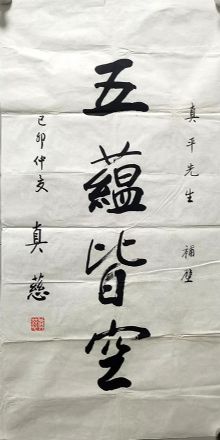 真平先生 補壁
五蘊皆空
己卯仲亥
真慈